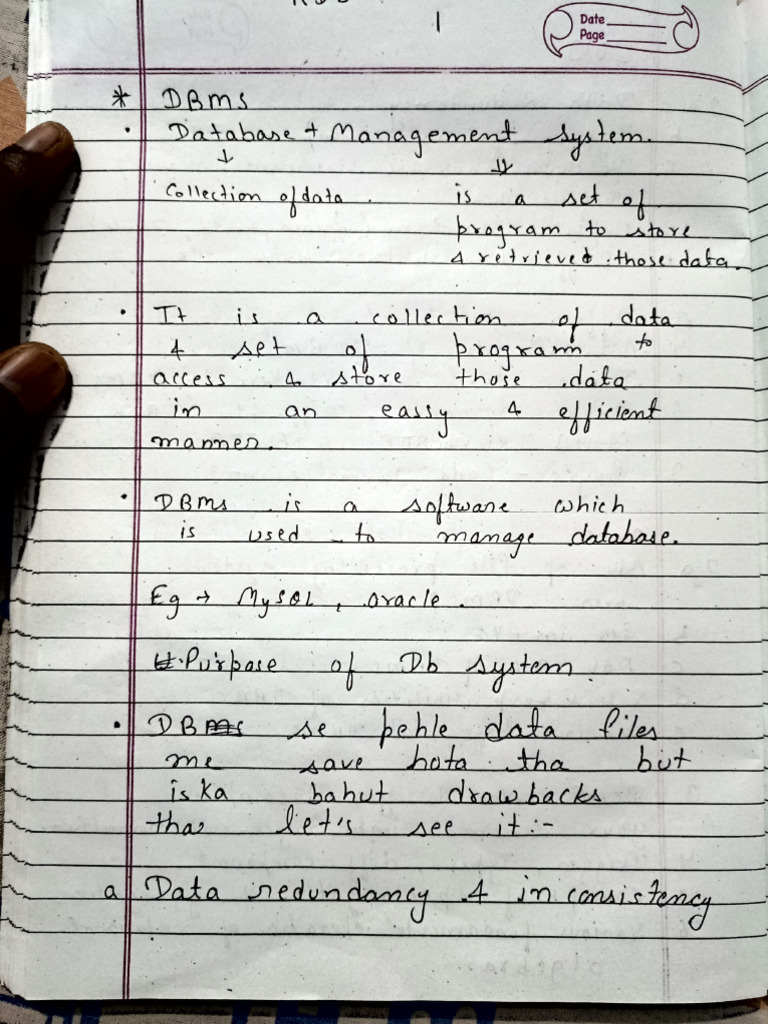 1
Date
Page
* DBMS
· Database + Management system.
↓ ⇓
Collection of data. is a set of
program to store
& retrieved those data.
· It is a collection of data
& set of programm to
access & store those data
in an eassy & efficient
manner.
· DBMS is a software which
is used to manage database.
Eg → MySQL, oracle.
Purpase of Db system.
· DBMS se pehle data files
me save hota tha but
iska bahut drawbacks
tha let's see it:-
a Data redundancy & inconsistency